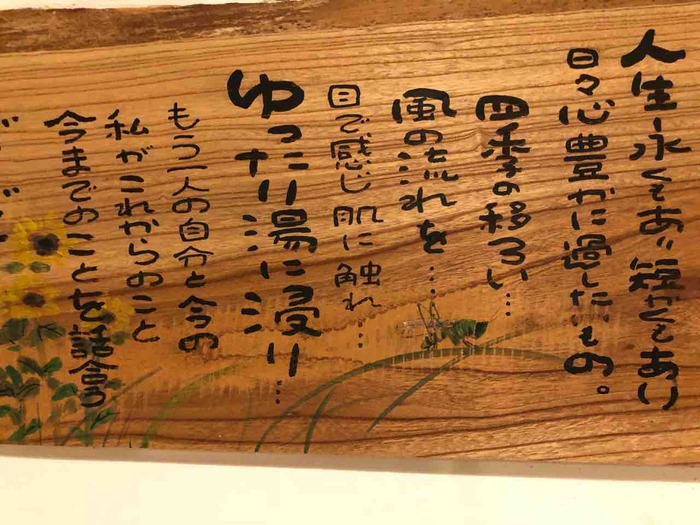 人生永くもあり短かくもあり
日々心豊かに過したいもの。
四季の移ろい…
風の流れを……
目で感じ肌に触れ……
ゆったり湯に浸り…
もう一人の自分と今の
私がこれからのこと
今までのことを話合う